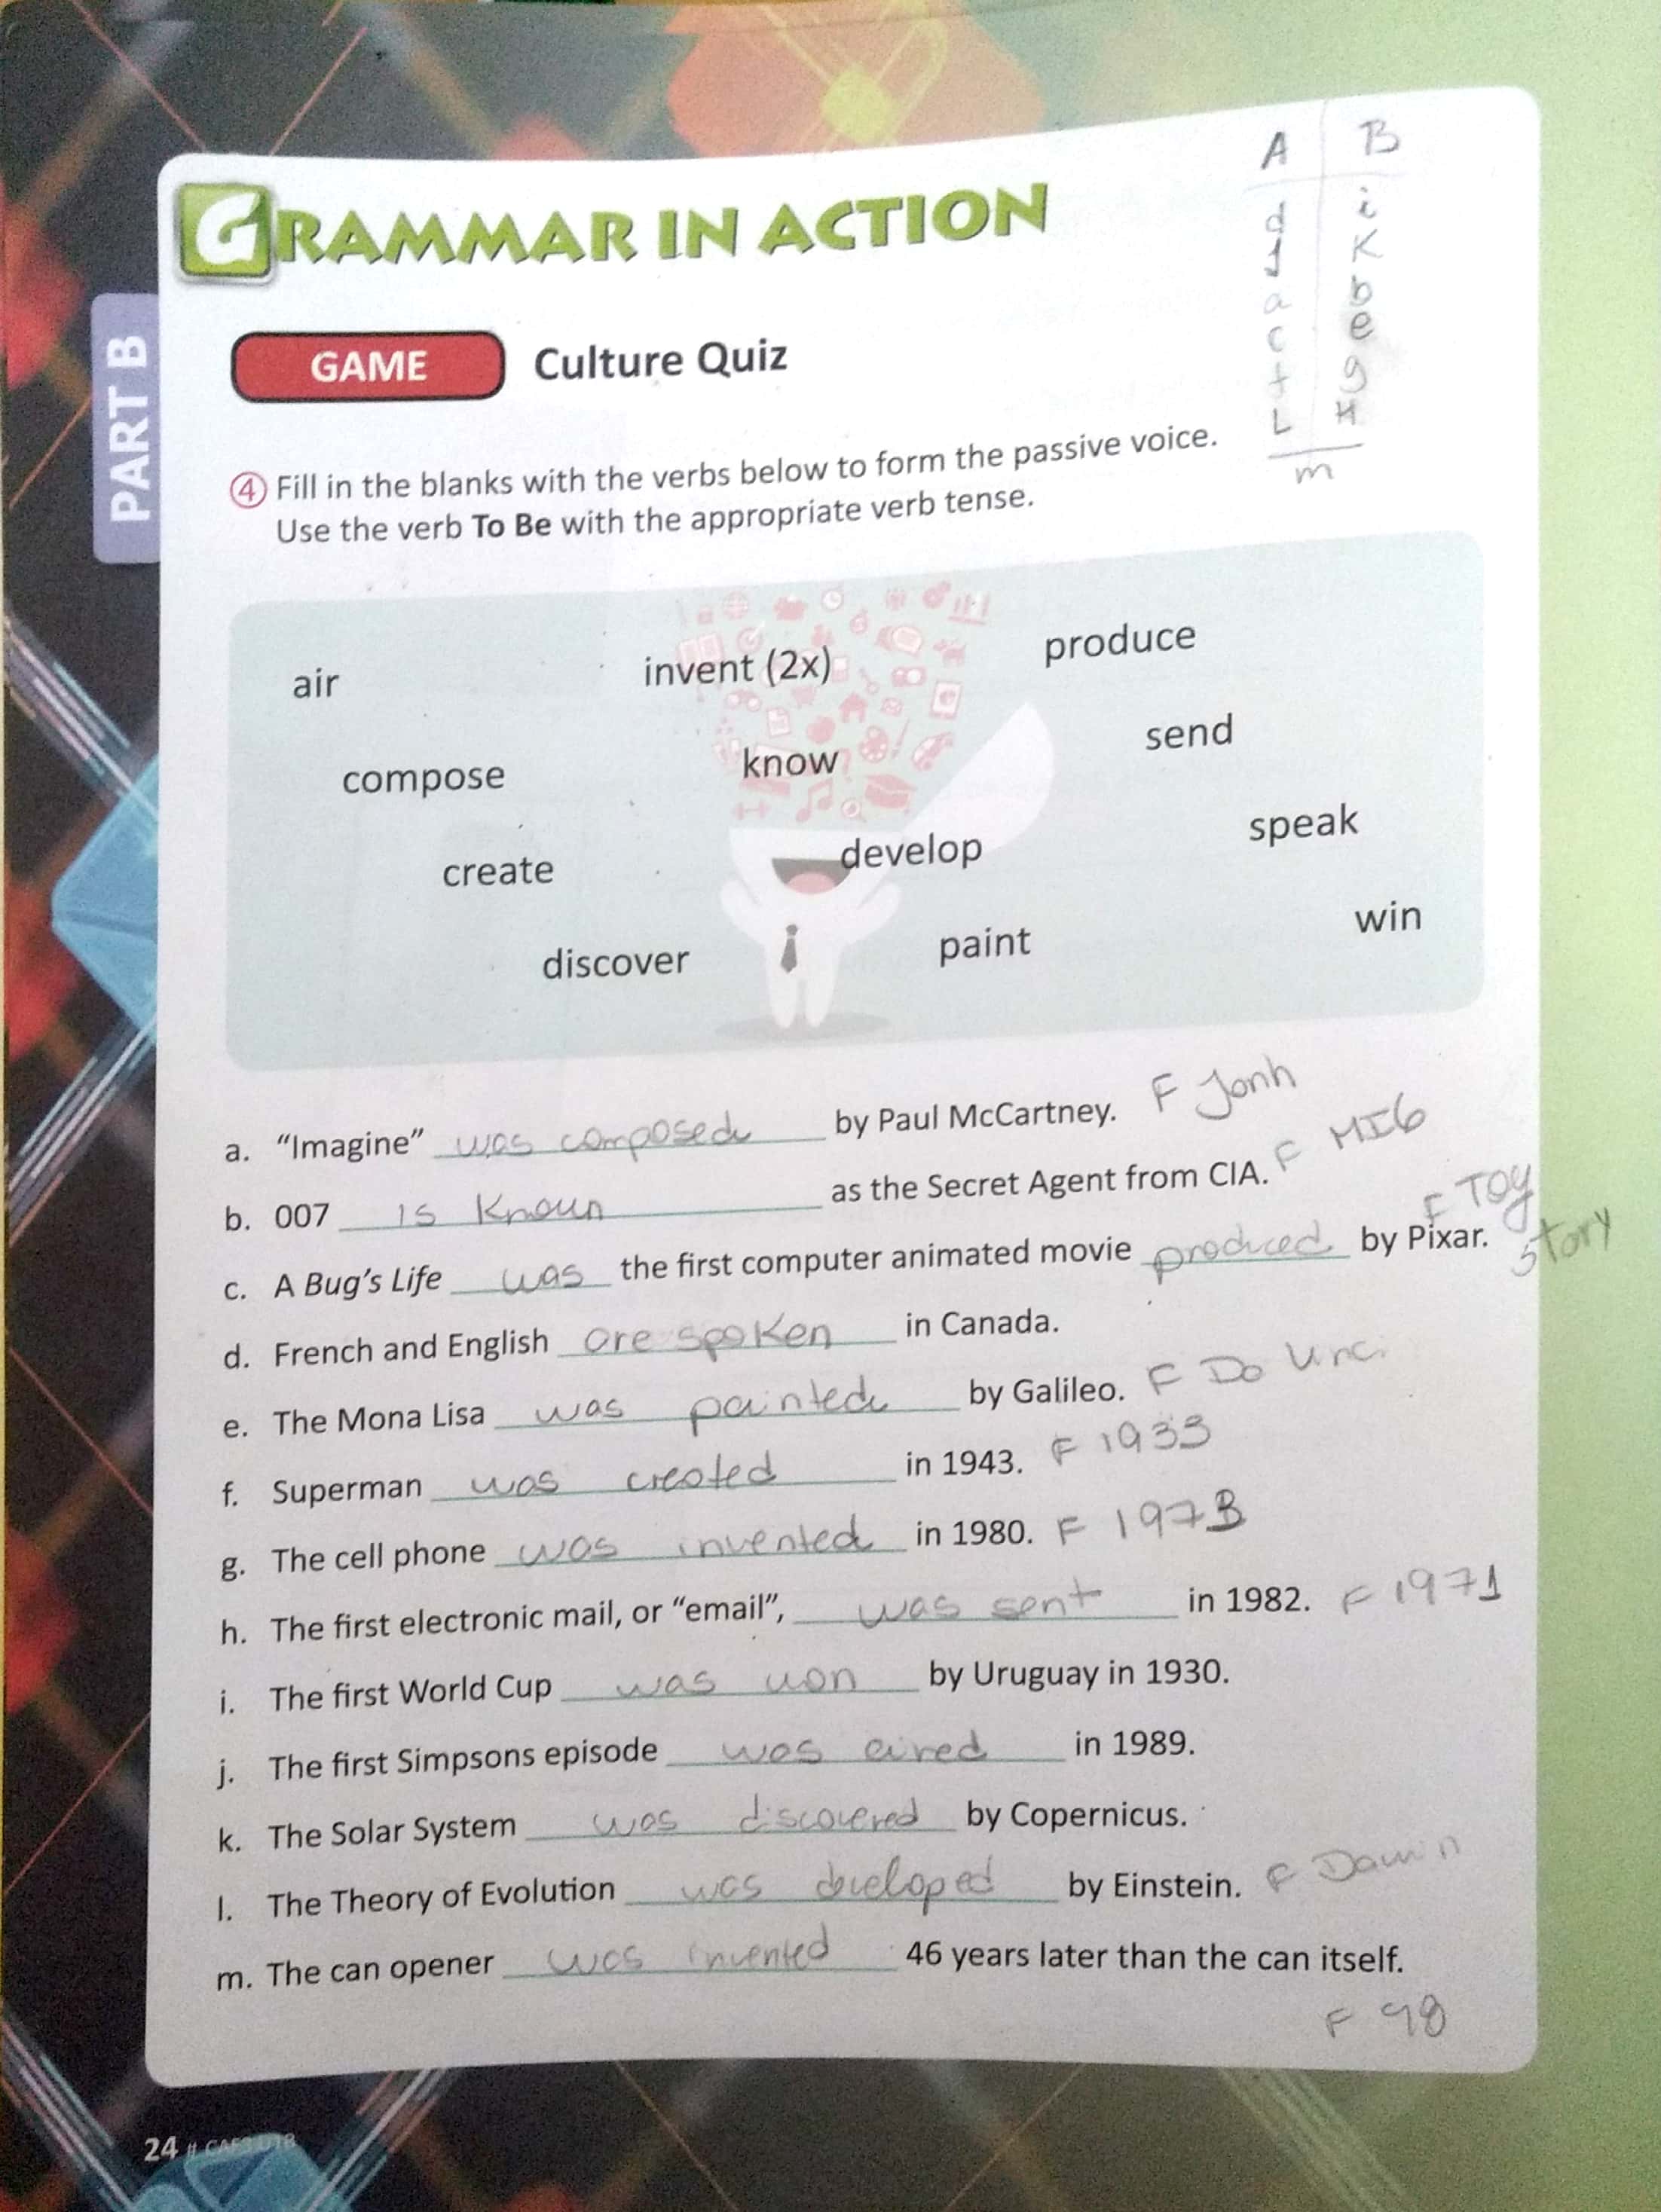 A B
d i
J K
a b
c e
f g
L H
m
GRAMMAR IN ACTION
PART B
GAME Culture Quiz
4 Fill in the blanks with the verbs below to form the passive voice.
Use the verb To Be with the appropriate verb tense.
air invent (2x) produce
compose know send
create develop speak
discover paint win
a. “Imagine” was composed by Paul McCartney. F Jonh
b. 007 is known as the Secret Agent from CIA. F MI6
c. A Bug’s Life was the first computer animated movie produced by Pixar. F Toy Story
d. French and English are spoken in Canada.
e. The Mona Lisa was painted by Galileo. F Da Vinci
f. Superman was created in 1943. F 1933
g. The cell phone was invented in 1980. F 1973
h. The first electronic mail, or “email”, was sent in 1982. F 1971
i. The first World Cup was won by Uruguay in 1930.
j. The first Simpsons episode was aired in 1989.
k. The Solar System was discovered by Copernicus.
l. The Theory of Evolution was developed by Einstein. F Darwin
m. The can opener was invented 46 years later than the can itself.
F 48
24 # CAF3 01B